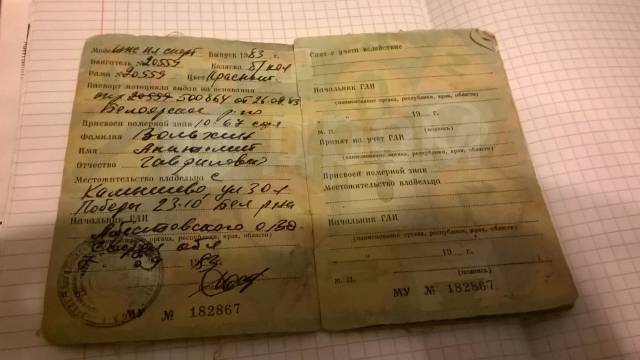 Модель ИЖ пл спорт Выпуск 1983 г.
Двигатель № 20559 Коляска б/кол
Рама № 20559 Цвет Красный
Паспорт мотоцикла выдан на основании
500864 от 26.08.83
Белоярский р-но
Присвоен номерной знак 10-67
Фамилия Вольхин
Имя Анатолий
Отчество Гаврилович
Местожительство владельца с
Камышево, ул 30 л
Победы 23-10 Бел. р-на
Начальник ГАИ
(наименование органа, республики, края, области)
1983 г.
МУ № 182867
Снят с учета вследствие
Начальник ГАИ
(наименование органа, республики, края, области)
" " 19... г.
м. п. (подпись)
Принят на учет ГАИ
(наименование органа, республики, края, области)
Присвоен номерной знак
Местожительство владельца
Начальник ГАИ
(наименование органа, республики, края, области)
" " 19... г.
м. п. (подпись)
МУ № 182867